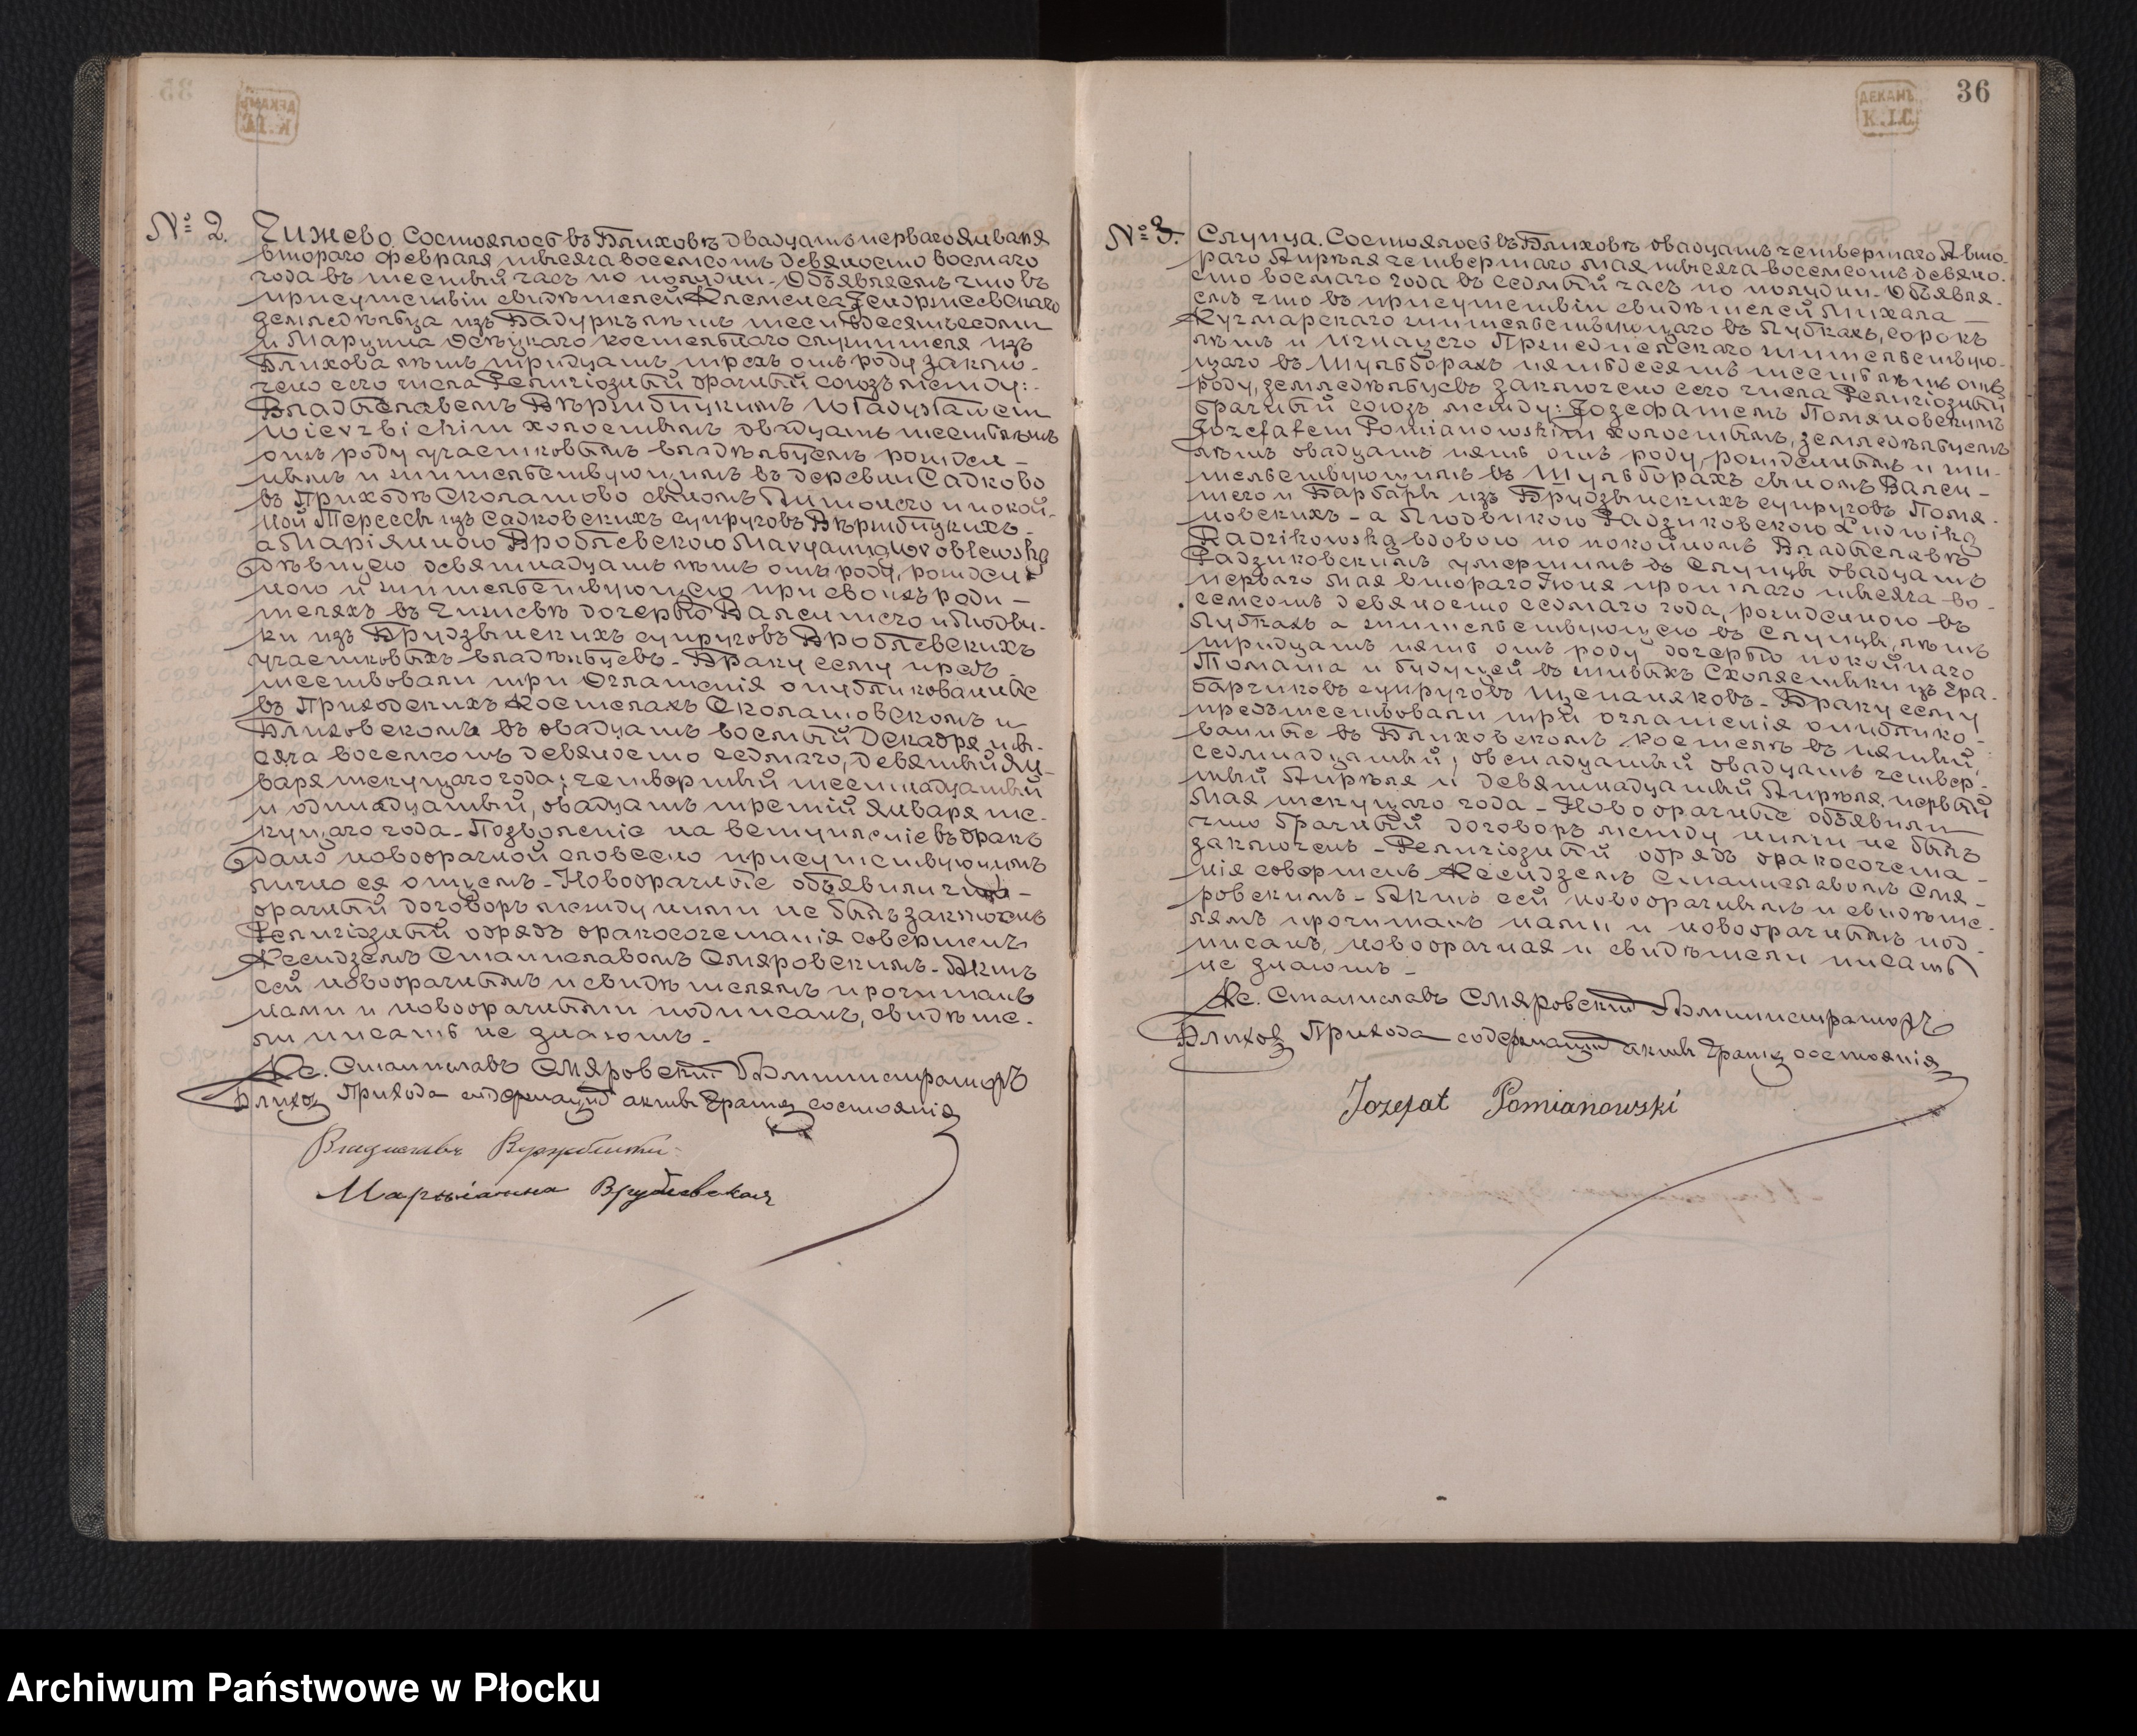 36
ДЕКАНЪ
К. І.С.
№ 2. Чижево. Состоялось въ Блиховѣ двадцать перваго Января
втораго Февраля тысяча восемсотъ девяносто восмаго
года въ шестый часъ по полудни. Объявляемъ что въ
присутствіи свидѣтелей Клеменса Ендржеевскаго
земледѣльца изъ Бадуркъ лѣтъ шестьдесятъ седми
и Марцина Осѣцкаго костельнаго служителя изъ
Блихова лѣтъ тридцать трехъ отъ роду заклю-
чено сего числа Религіозный брачный союзъ между:
Владыславемъ Вѣржбицкимъ Władysławem
Wierzbickim холостымъ двадцать шесть лѣтъ
отъ роду участковымъ владѣльцемъ рожден-
нымъ и жительствующимъ въ деревни Садково
въ Приходѣ Сколатово сыномъ Антонего и покой-
ной Тересы изъ Садковскихъ супруговъ Вѣржбицкихъ -
а Маріянною Вроблевскою Maryanną Wroblewską
дѣвицею девятнадцать лѣтъ отъ роду, рожден-
ною и жительствующею при своихъ роди-
теляхъ въ Чижевѣ дочерью Валентего и Людви-
ки изъ Брудзынскихъ супруговъ Вроблевскихъ
участковыхъ владѣльцевъ - Браку сему пред-
шествовали три Оглашенія опубликованные
въ Приходскихъ Костелахъ Сколатовскомъ и
Блиховскомъ въ двадцать восмый Декабря ты-
сяча восемсотъ девяносто седмаго, девятый Ян-
варя текущаго года; четвертый шестнадцатый
и одинадцатый, двадцать третій Января те-
кущаго года - Позволеніе на вступленіе въ бракъ
дано новобрачной словесно присутствующимъ
лично ея отцемъ - Новобрачные объявили что
брачный договоръ между ними не былъ заключенъ
Религіозный обрядъ бракосочетанія совершенъ
Ксендземъ Станиславомъ Смяровскимъ - Актъ
сей новобрачнымъ и свидѣтелямъ прочитанъ
нами и новобрачными подписанъ, свидѣте-
ли писать не знаютъ -
Кс. Станиславъ Смяровскій Администраторъ
Блихов Прихода содержащій акты Гражд состоянія
Владиславъ Вержбицки
Марыіанна Врублевская
№ 3. Слупца. Состоялось въ Блиховѣ двадцать четвертаго Авто-
раго Апрѣля четвертаго мая тысяча восемсотъ девяно-
сто восмаго года въ седмый часъ по полудни - Объявля-
емъ что въ присутствіи свидѣтелей Михала
Кучмарскаго жительствующаго въ Лубкахъ, сорокъ
лѣтъ и Игнацего жительствую-
щаго въ Шульборахъ пятьдесятъ шесть лѣтъ отъ
роду, земледѣльцевъ заключено сего числа Религіозный
брачный союзъ между: Іозефатемъ Помяновскимъ
Jozefatem Pomianowskim холостымъ, земледѣльцемъ
лѣтъ двадцать пять отъ роду, рожденнымъ и жи-
тельствующимъ въ Шульборахъ сыномъ Вален-
тего и Барбары изъ Брудзынскихъ супруговъ Помя-
новскихъ - а Людвикою Радзиковскою Ludwiką
Radzikowską вдовою по покойномъ Владыславѣ
Радзиковскимъ умершимъ въ Слупцы двадцать
перваго мая втораго Іюня прошлаго тысяча во-
семсотъ девяносто седмаго года, рожденною въ
Лубкахъ а жительствующею въ Слупцы, лѣтъ
тридцать пять отъ роду дочерью покойнаго
Томаша и будущей въ живыхъ Схолястыки изъ Гра-
барчиковъ супруговъ Щепаняковъ - Браку сему
предшествовали три оглашенія опублико-
ванные въ Блиховскомъ костелѣ въ пятый,
седмнадцатый; двенадцатый двадцать четвер-
тый Апрѣля и девятнадцатый Апрѣля, первый
Мая текущаго года - Новобрачные объявили
что брачный договоръ между ними не былъ
заключенъ - Религіозный обрядъ бракосочета-
нія совершенъ Ксендземъ Станиславомъ Смя-
ровскимъ - Актъ сей новобрачнымъ и свидѣте-
лямъ прочитанъ нами и новобрачнымъ под-
писанъ, новобрачная и свидѣтели писать
не знаютъ -
Кс. Станиславъ Смяровскій Администраторъ
Блихов Прихода содержащій акты Гражд состоянія
Jozefat Pomianowski
Archiwum Państwowe w Płocku